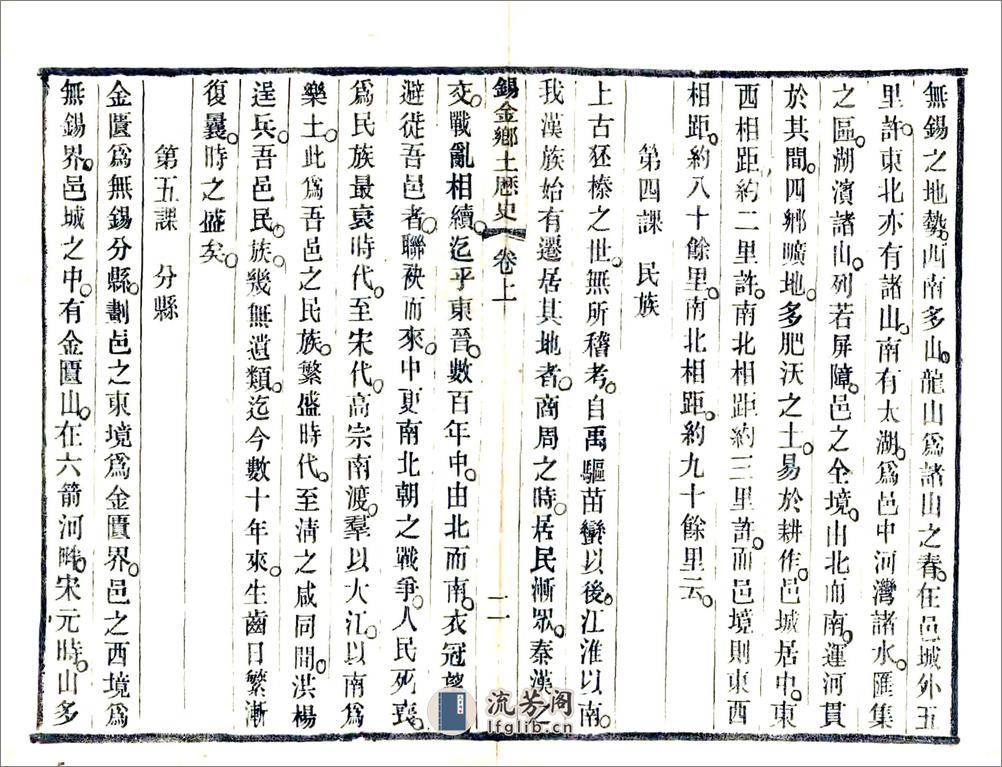 無錫之地勢。西南多山。龍山爲諸山之脊。在邑城外五
里許。東北亦有諸山。南有太湖。爲邑中河灣諸水。匯集
之區。湖濱諸山。列若屏障。邑之全境。由北而南。運河貫
於其間。四鄉曠地。多肥沃之土。易於耕作。邑城居中。東
西相距約二里許。南北相距約三里許。而邑境則東西
相距。約八十餘里。南北相距。約九十餘里云。
第四課 民族
上古狉榛之世。無所稽考。自禹驅苗蠻以後。江淮以南。
我漢族始有遷居其地者。商周之時。居民漸眾。秦漢之
錫金鄉土歷史 卷上 二
交。戰亂相續。迄乎東晉。數百年中。由北而南。衣冠
避徙吾邑者。聯袂而來。中更南北朝之戰爭。人民死喪。
爲民族最衰時代。至宋代。高宗南渡。羣以大江。以南爲
樂土。此爲吾邑之民族。繁盛時代。至清之咸同間。洪楊
逞兵。吾邑民。族。幾無遺類。迄今數十年來。生齒日繁。漸
復曩時之盛矣。
第五課 分縣
金匱爲無錫分縣。劃邑之東境爲金匱界。邑之西境爲
無錫界。邑城之中。有金匱山。在六箭河畔。宋元時。山多
流芳阁
lfglib.cn